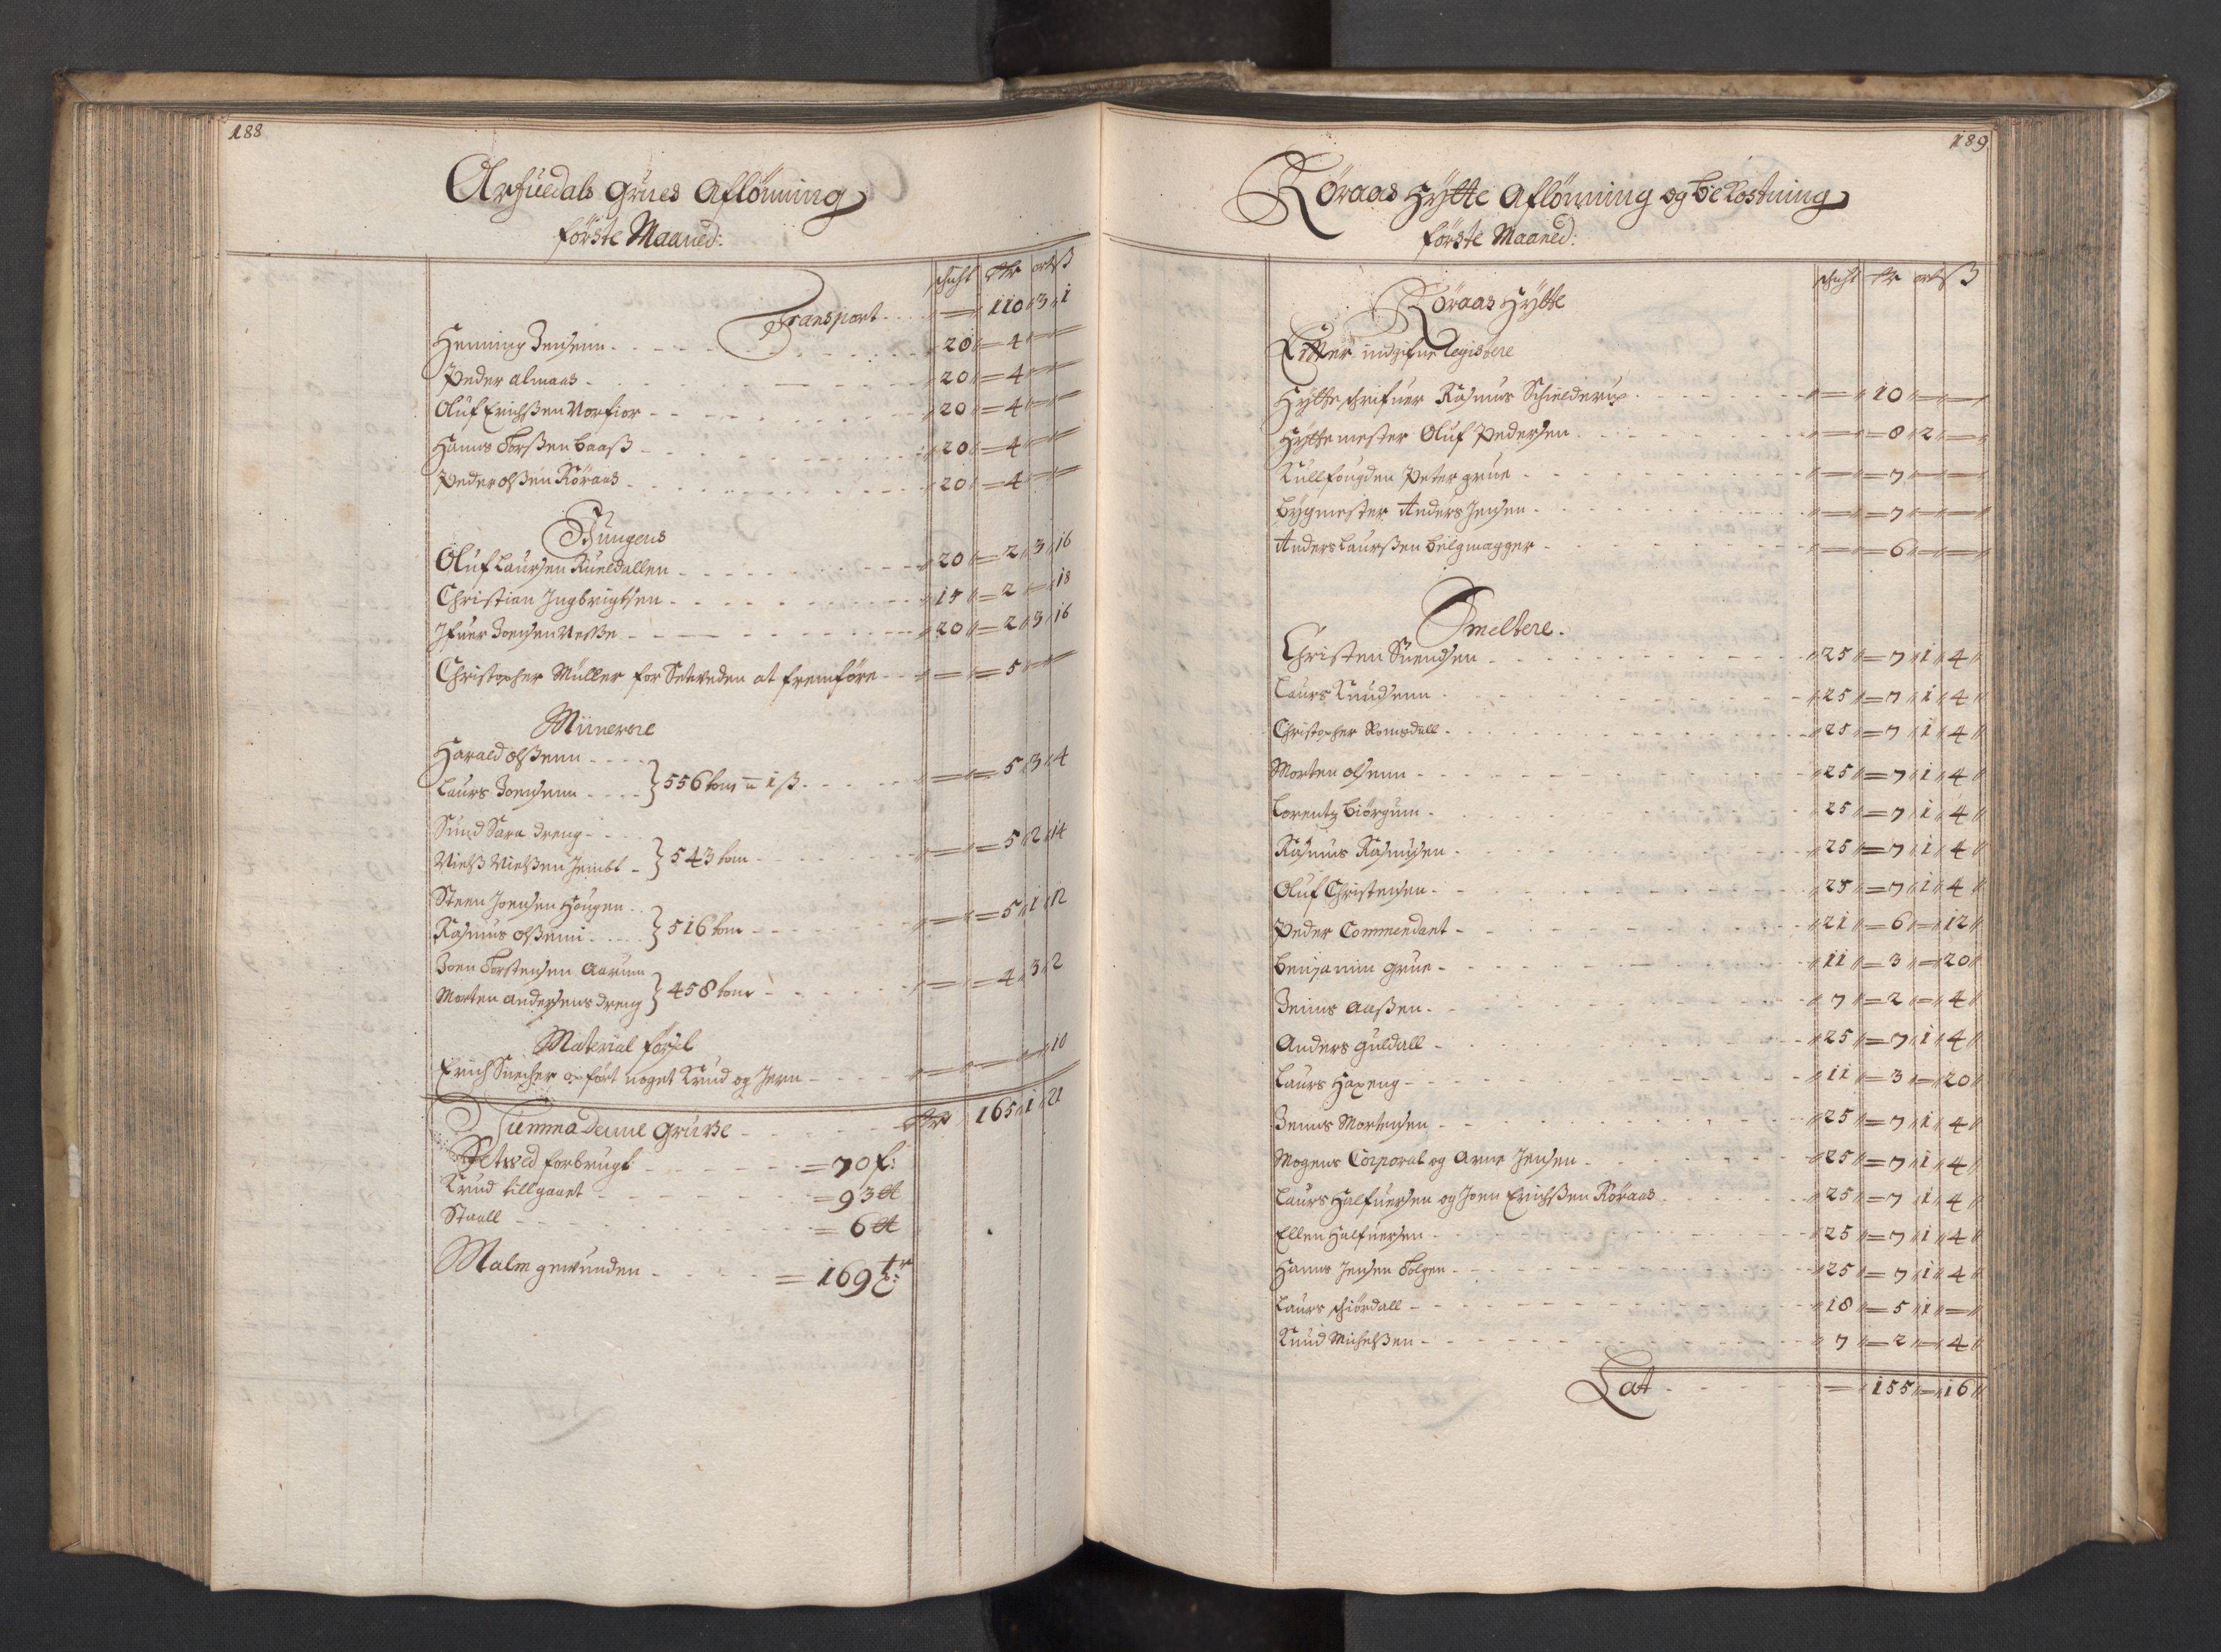 188
Arfuedals Grues Aflönning
förste Maaned:
schicht Rdr ort ß
Transport = 110 3 1
Henning Jensenn 20 = 4
Peder almaas 20 = 4
Oluf Erichßen Norfior 20 = 4
Hanns Torßen baaß 20 = 4
Peder olßen Röraas 20 = 4
Jungens
Oluf Laursen Kueldallen 20 = 2 3 16
Christian Ingbrigtsen 15 = 2 = 18
Ifuer Joensen 20 = 2 3 16
Christopher Müller for Setveden at fremföre = 5
Miinerere
Harald olßenn
Laurs Joensenn } 556 tom a 1 ß = 5 3 4
Suend Sara dreng
Nielß Nielßen Jembt } 543 tom = 5 2 14
Steen Joensen Haugen
Rasmus olßenn } 516 tom = 5 1 12
Joen Torstensen Aarum
Morten andersens dreng } 458 tom = 4 3 2
Material försel
Erich opfört noget Krud og Jern = 10
Summa denne Grube Rdr 165 1 21
Setved forbrugt = 70 f:
Krud tillgaaet = 93 tt
Staall = 6 tt
Malm gewunden = 169 tr:
189
Röraas Hÿtte Aflönning og bekostning
förste Maaned:
schicht Rdr ort ß
Röraas Hÿtte
Efter indgifne Register
Hÿtteschrifuer Rasmus Schielderup = 10
Hÿttemester Oluf Pedersen = 8 2
Kullfougden Peter grue = 7
Bÿgmester Anders Jensen = 7
Anders Laurßen belgmagger = 6
Smeltere.
Christen Suendsen 25 = 7 1 4
Laurs Knudsenn 25 = 7 1 4
Christopher Romsdall 25 = 7 1 4
Morten olsenn 25 = 7 1 4
Lorentz Biörgum 25 = 7 1 4
Rasmus Rasmusen 25 = 7 1 4
Oluf Christensen 25 = 7 1 4
Peder Commendant 21 = 6 = 12
Benjamin grue 11 = 3 = 20
Jenns Aaßen 7 = 2 = 4
Anders Guldall 25 = 7 1 4
Laurs Haxeng 11 = 3 = 20
Jenns Mortensen 25 = 7 1 4
Mogens Corporal og Arne Jensen 25 = 7 1 4
Laurs Halfuersen og Joen Erichßen Röraas 25 = 7 1 4
Ellen Halfuersen 25 = 7 1 4
Hanns Jensen Tolgen 25 = 7 1 4
Laurs schiördall 18 = 5 1 =
Knud Michelßen 7 = 2 = 4
Lat = 155 = 16